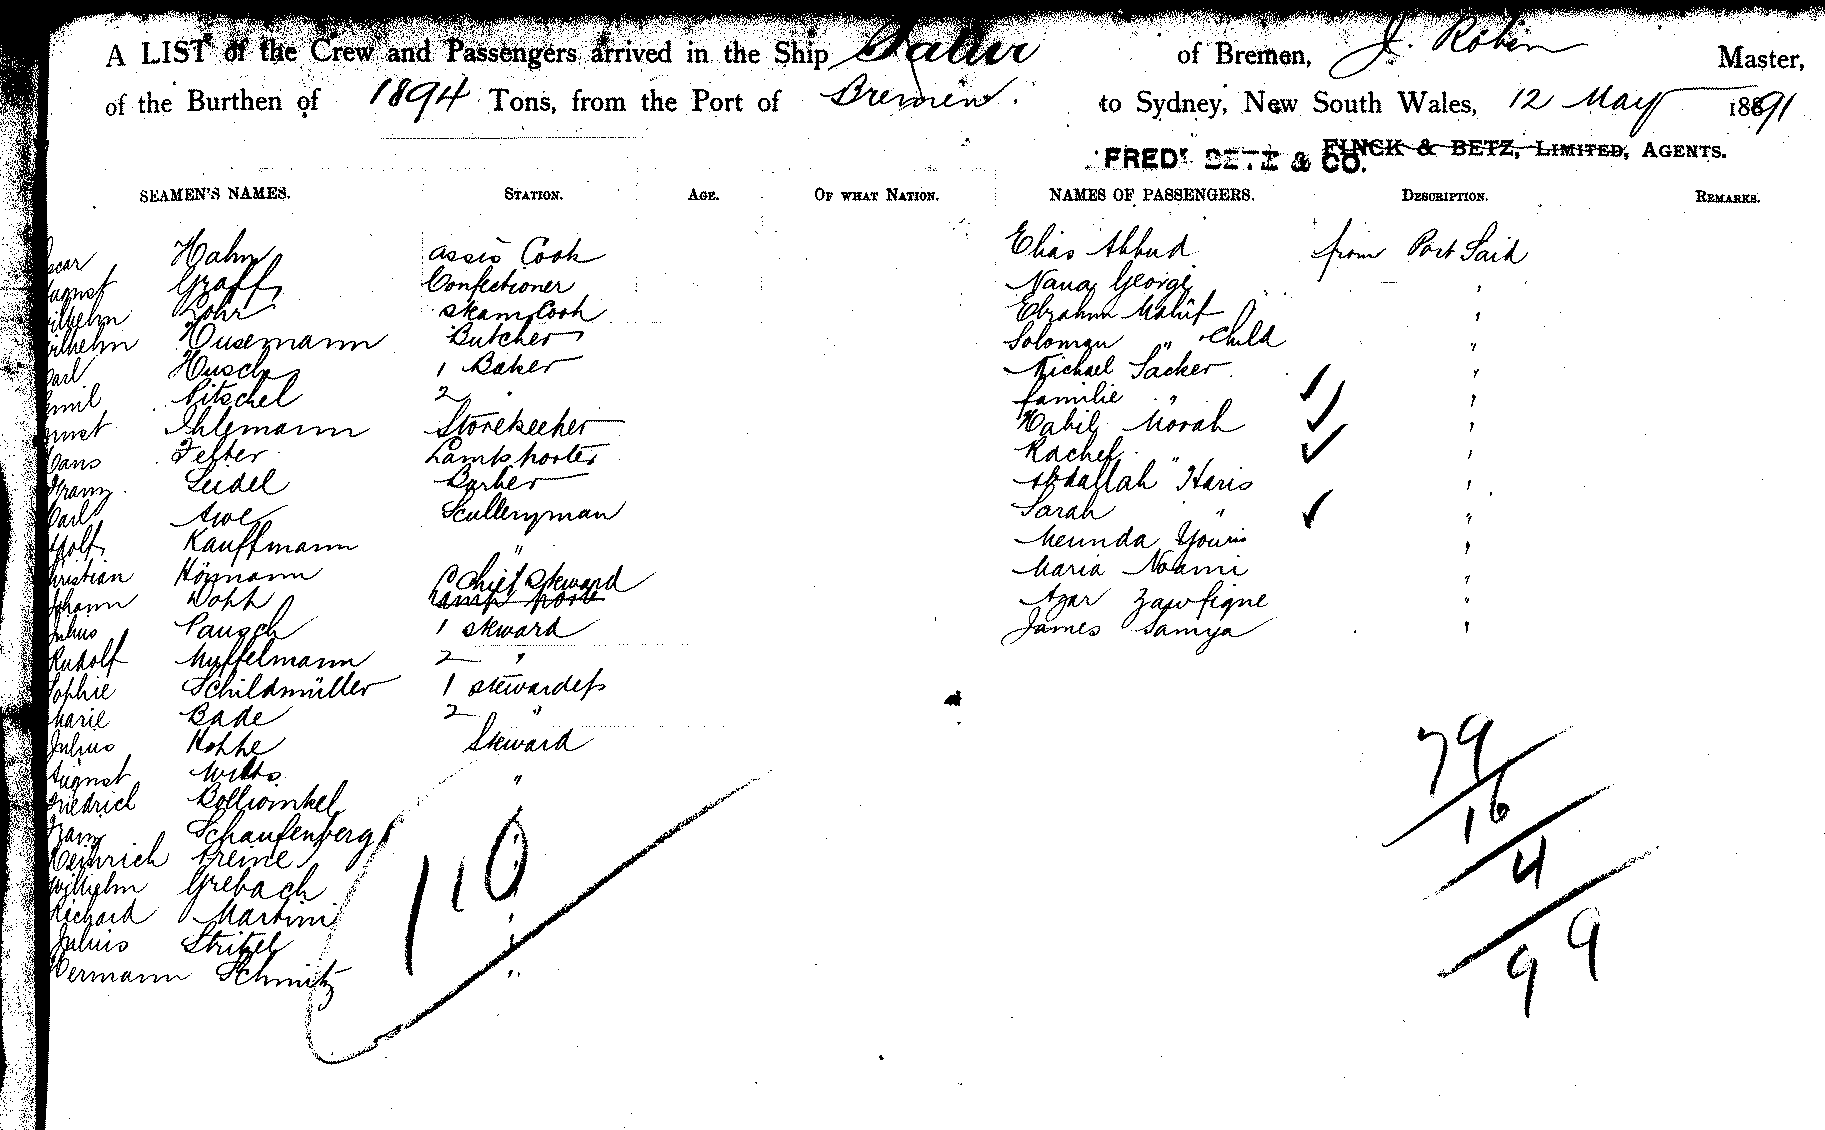 A LIST of the Crew and Passengers arrived in the Ship Salier of Bremen, J. Robin Master,
of the Burthen of 1894 Tons, from the Port of Bremen. to Sydney, New South Wales, 12 May 1891
FINCK & BETZ, LIMITED, AGENTS.
FREDK BETZ & CO.
SEAMEN'S NAMES. STATION. AGE. OF WHAT NATION. NAMES OF PASSENGERS. DESCRIPTION. REMARKS.
Hahn assis Cook Elias Abbud from Port Said
August Graff Confectioner Nana George "
Wilhelm Rohr steam Cook Ebrahim "
Wilhelm Husemann Butcher Solomon " Child "
Carl Husch 1 Baker Michael Sacker "
Emil Pitschel 2 " familie " "
Ernst Ihlemann Storekeeper Habib Morah "
Hans Felber Lampsporter Rachel "
Franz Seidel Barber Abdallah Haris "
Carl Awe Sculleryman Sarah " "
Adolf Kauffmann " Younis "
Christian Hörmann Chief Steward Maria Noami "
Johann Lamp porter Azar "
Julius Pausch 1 steward James Samya "
Rudolf Muffelmann 2 "
Sophie Schildmüller 1 stewardess
Marie Bade 2 "
Julius Hohhe Steward
August Wilts "
Friedrich
Franz Schaufenberg
Heinrich Breme
Wilhelm Grebach
Richard Martini "
Julius Stritzel "
Hermann Schmitz "
110
79
16
4
99